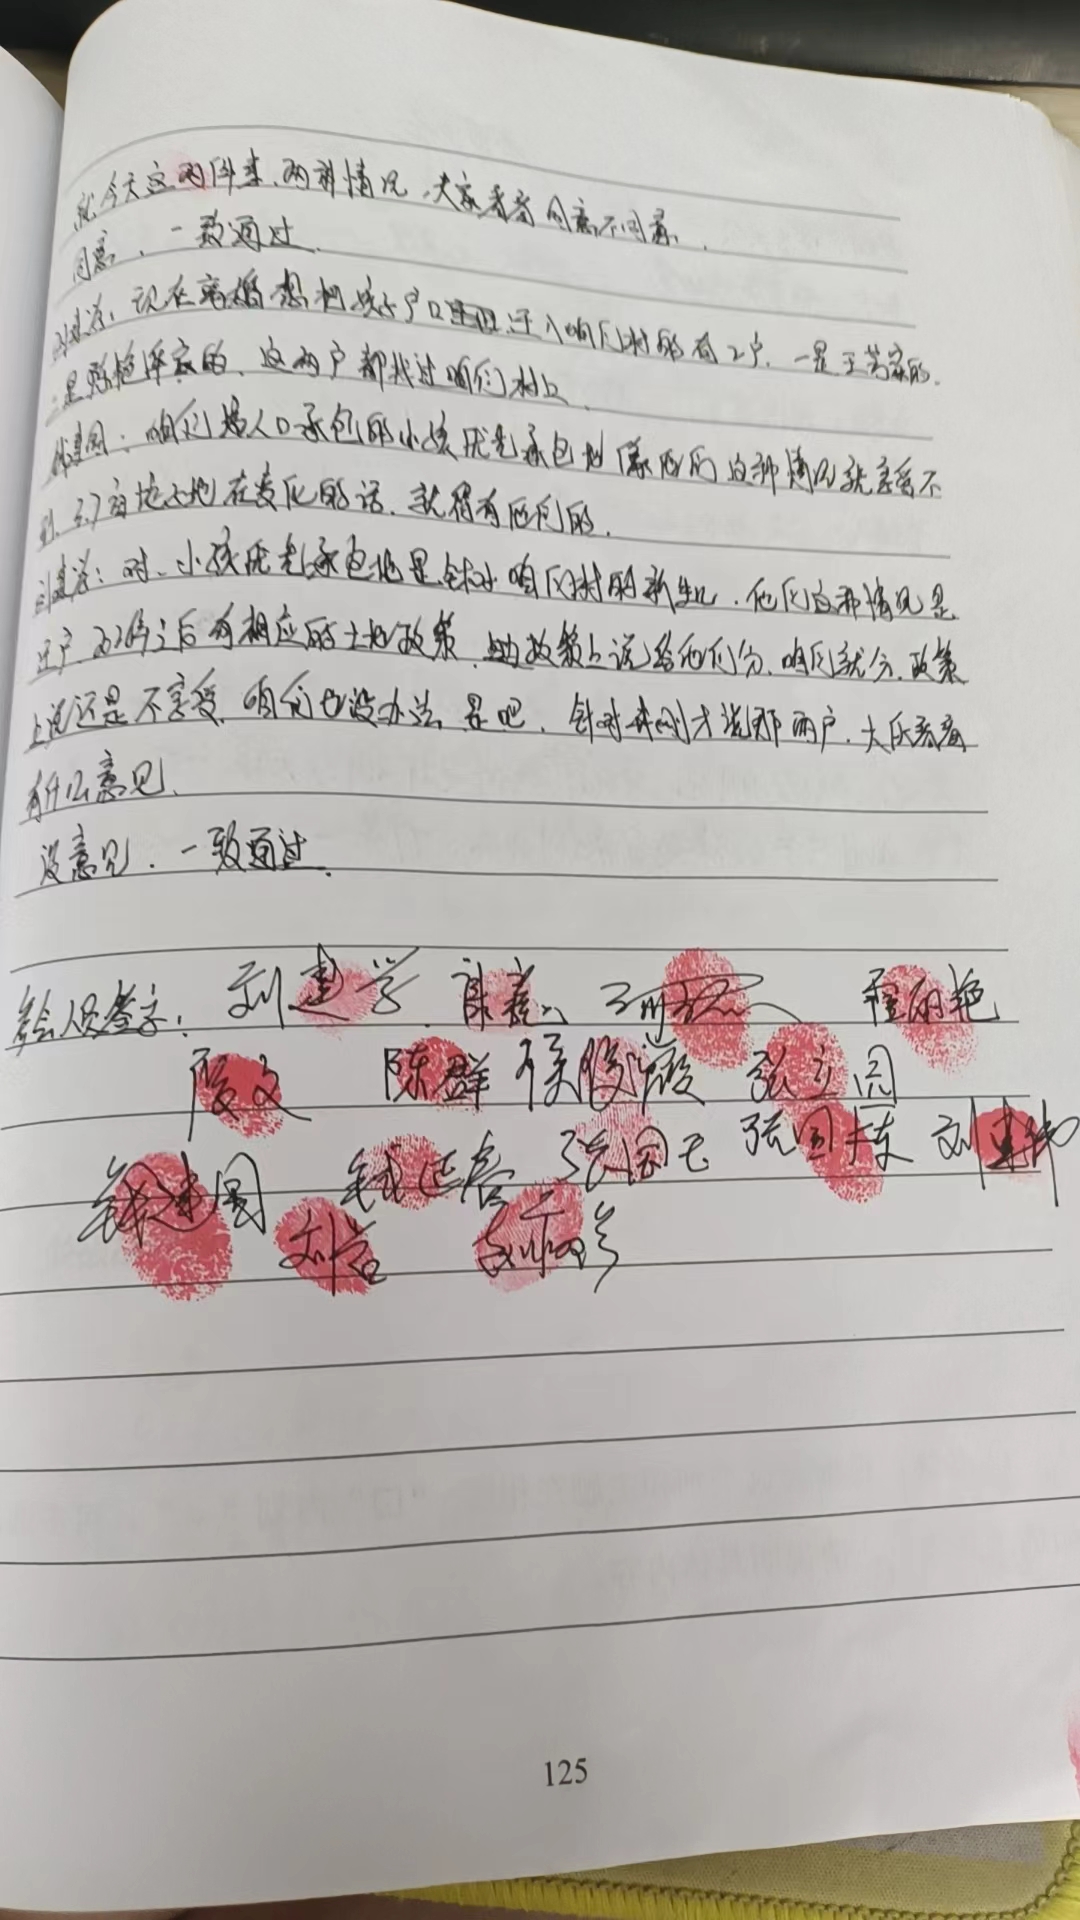 就今天这两件事、两种情况、大家看看同意不同意.
同意、一致通过.
刘建学: 现在离婚想把孩子户口迁入咱们村的有2户、一是王芳家的.
二是张艳泽家的、这两户都找过咱们村上.
钱建国: 咱们按人口承包的小孩优先承包地像他们这种情况就享受不
到、3.7亩地土地在变化的话、就得有他们的.
刘建学: 对、小孩优先承包地是针对咱们村的新生儿、他们这种情况是
迁户、2028年之后有相应的土地政策、政策上说给他们分、咱们就分、政策
上说还是不享受、咱们也没办法、是吧、针对我刚才说那两户、大家看看
有什么意见.
没意见、一致通过.
参会人员签字: 刘建学 程丽艳
陈群 侯俊霞 张立国
钱建国 钱延春 张国玉 张国栋 刘建纬